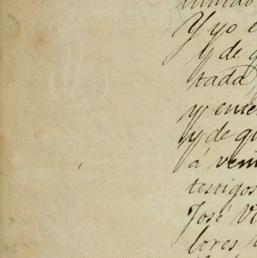 Y yo e
y de q
tada
y ente
y de qu
á vein
testigos
José V
lores